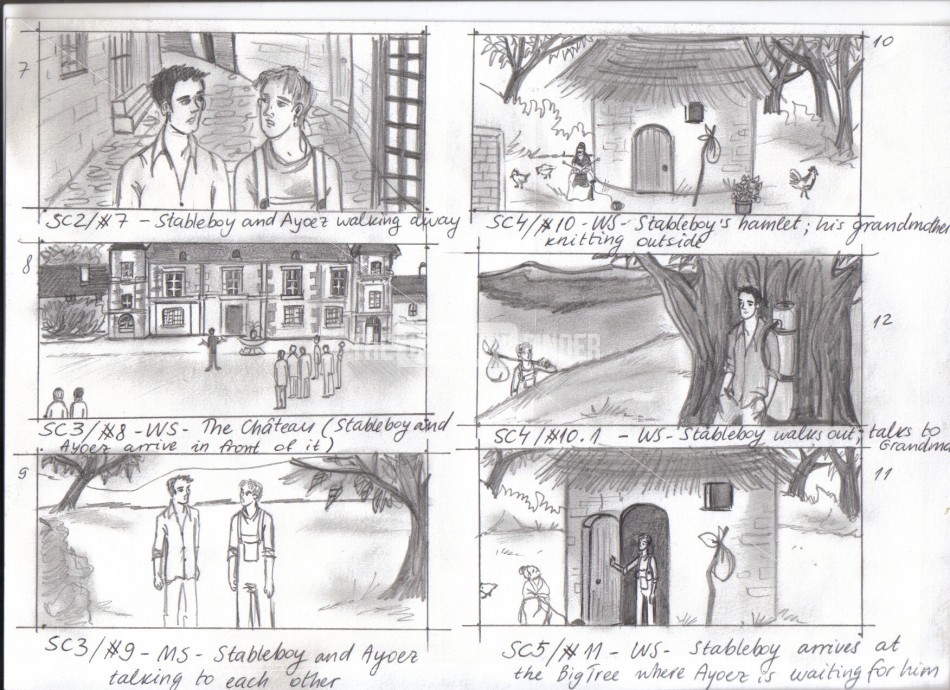 7
SC2/#7 - Stableboy and Ayoez walking away
8
SC3/#8 - WS - The Château (Stableboy and
Ayoez arrive in front of it)
9
SC3/#9 - MS - Stableboy and Ayoez
talking to each other
10
SC4/#10 - WS - Stableboy's hamlet; his grandmother
knitting outside
12
SC4/#10.1 - WS - Stableboy walks out; talks to
Grandma
11
SC5/#11 - WS - Stableboy arrives at
the Big Tree where Ayoez is waiting for him